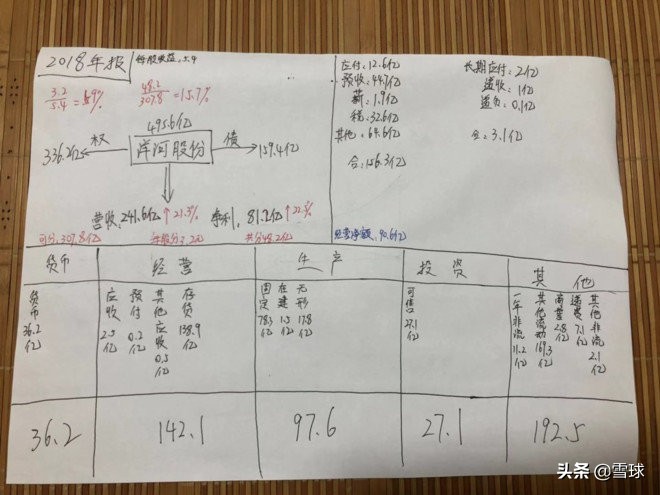 2018年报 每股收益:5.4
3.2/5.4=59% 48.2/307.8=15.7%
495.6亿
336.2亿 权 洋河股份 债 159.4亿
营收:241.6亿↑21.3% 净利:81.2亿↑22.5%
可分:307.8亿 每股分:3.2元 共分48.2亿
应付:12.6亿
预收:44.7亿
薪:1.9亿
税:32.6亿
其他:64.6亿
合:156.3亿
长期应付:2亿
递收:1亿
递负:0.1亿
合:3.1亿
经营净额:90.6亿
货币 经营 生产 投资 其他
货币36.2亿
应收2.5亿
预付0.2亿
其他应收0.5亿
存货138.9亿
固定78.3亿
在建1.5亿
无形17.8亿
可售27.1亿
一年非流11.2亿
其他流动169.3亿
商誉2.8亿
递费7.1亿
其他非流2.1亿
36.2 142.1 97.6 27.1 192.5
头条 @雪球